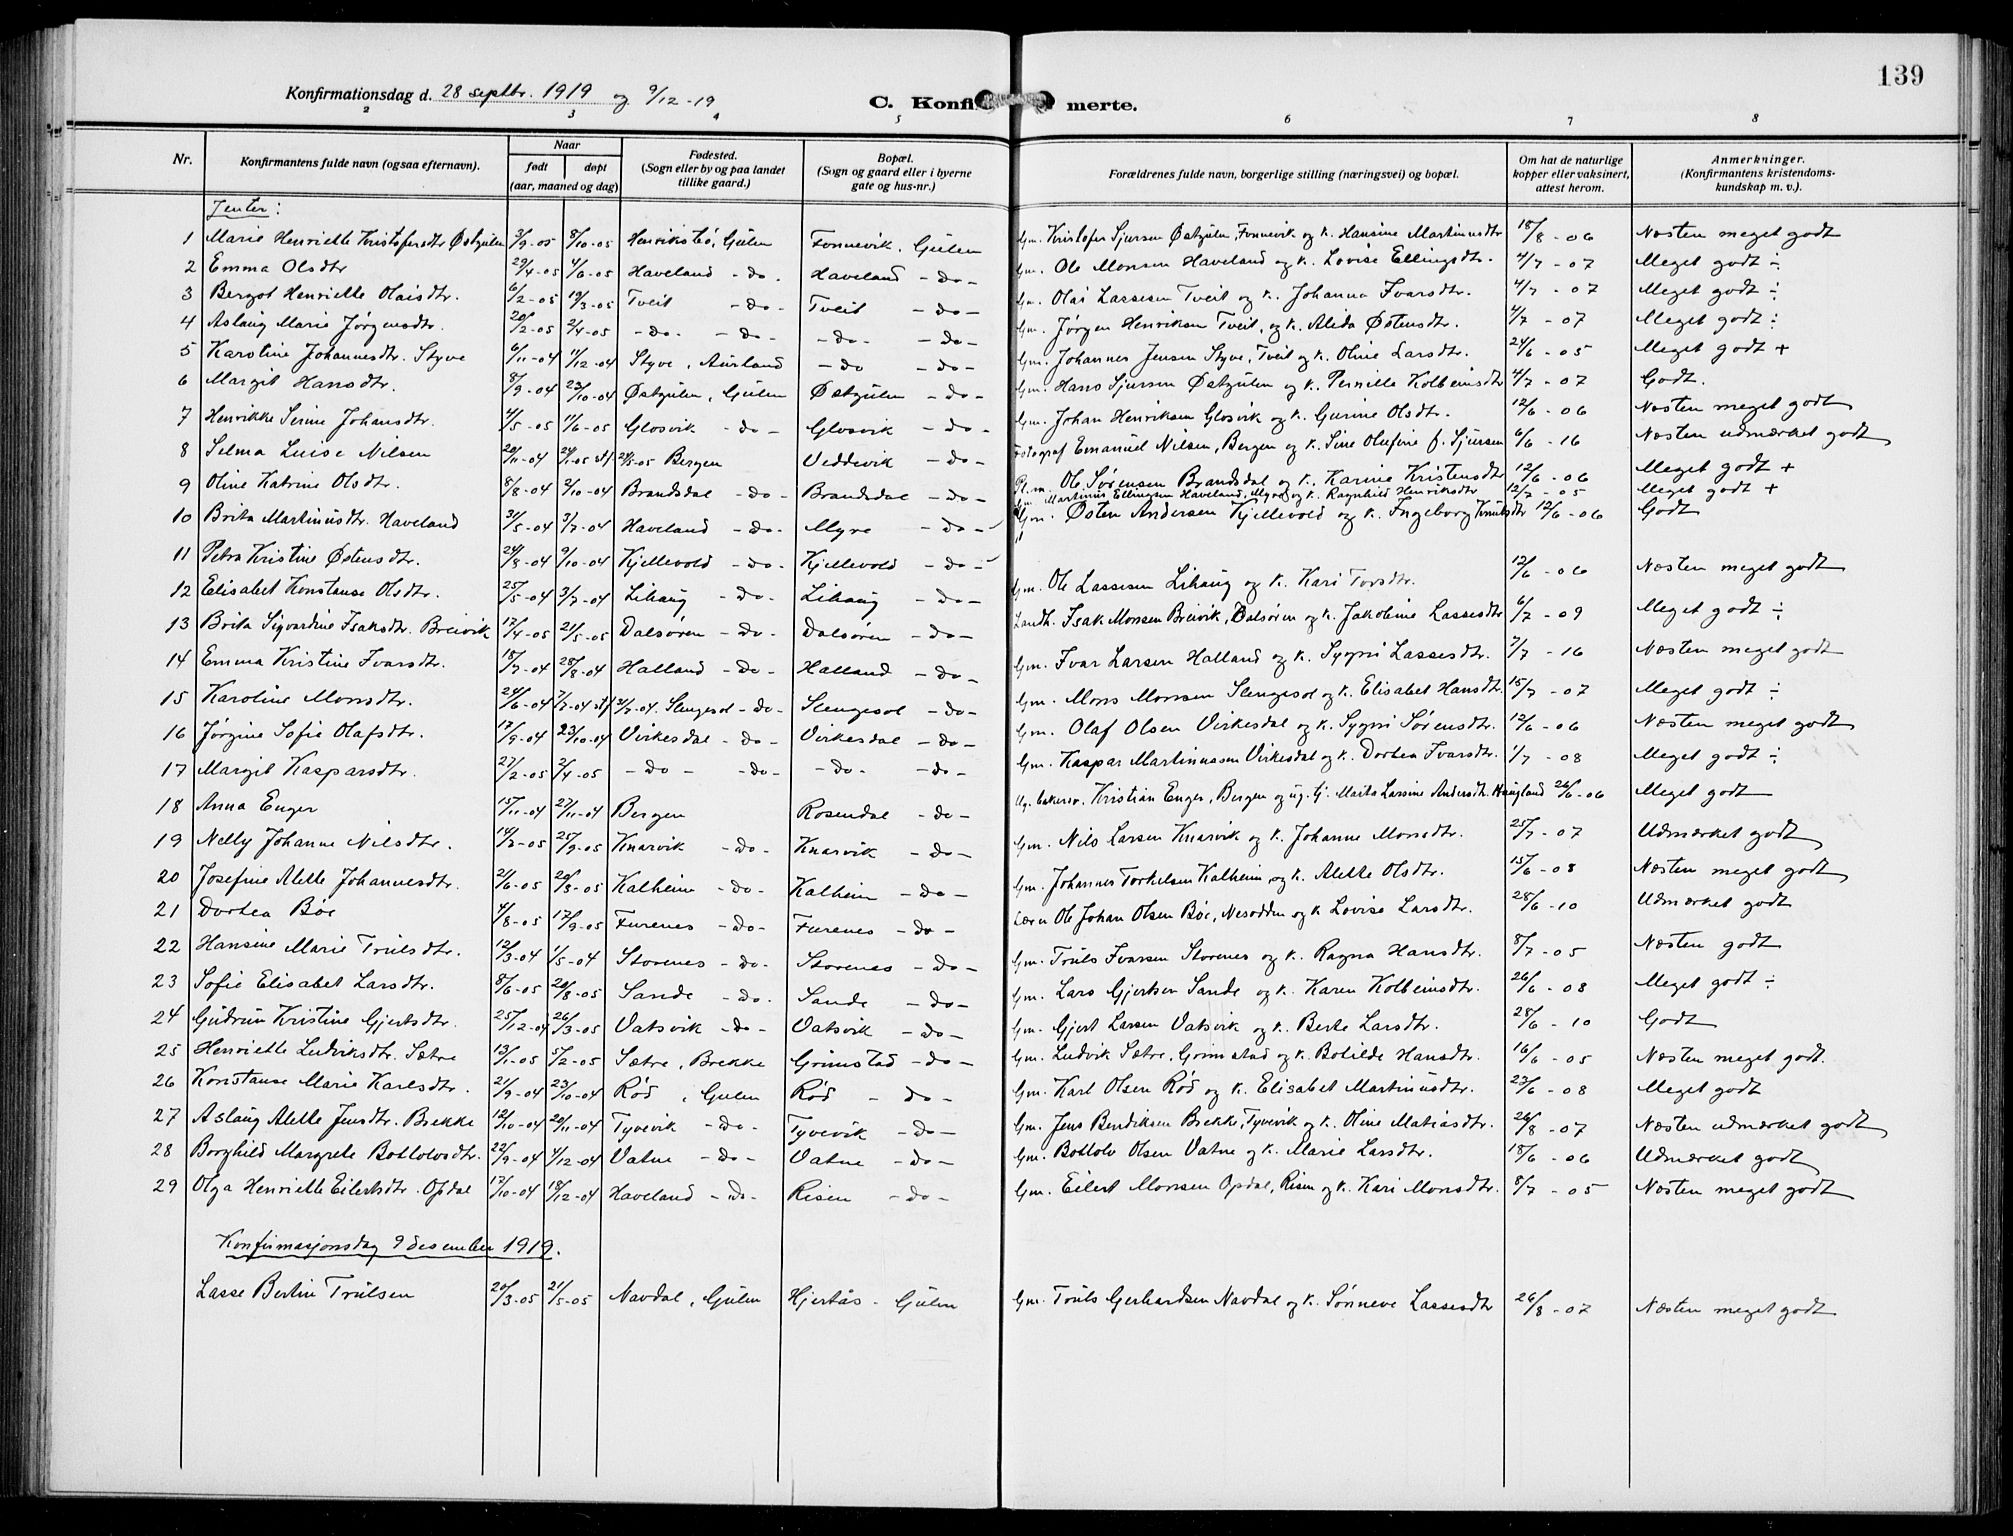 139
Konfirmationsdag d. 28 septbr. 1919 og 9/12-19
C. Konfirmerte.
2 3 4 5 6 7 8
Nr. Konfirmantens fulde navn (ogsaa efternavn). Naar født døpt (aar, maaned og dag) Fødested. (Sogn eller by og paa landet tillike gaard.) Bopæl. (Sogn og gaard eller i byerne gate og hus-nr.) Forældrenes fulde navn, borgerlige stilling (næringsvei) og bopæl. Om hat de naturlige kopper eller vaksinert, attest herom. Anmerkninger. (Konfirmantens kristendomskundskap m. v.).
Jenter:
1 Marie Henriette Kristofersdtr Østgulen 3/9-05 8/10-05 Henriksbø, Gulen Fonnevik, Gulen Gm. Kristofer Sjursen Østgulen, Fonnevik og k. Hansine Martinusdtr 18/8-06 Næsten meget godt
2 Emma Olsdtr 29/4-05 4/6-05 Haveland -do- Haveland -do- Gm. Ole Monsen Haveland og k. Lovise Ellingsdtr. 4/7-07 Meget godt ÷
3 Bergot Henriette Olaisdtr. 6/2-05 19/3-05 Tveit -do- Tveit -do- Gm. Olai Lassesen Tveit og k. Johanna Ivarsdtr. 4/7-07 Meget godt ÷
4 Aslaug Marie Jørgensdtr. 20/2-05 2/4-05 -do- -do- -do- -do- Gm. Jørgen Henriksen Tveit, og k. Alida Østensdtr. 4/7-07 Meget godt ÷
5 Karstine Johannesdtr. Styve 6/11-04 11/12-04 Styve, Aurland -do -do- Gm. Johannes Jensen Styve, Tveit og k. Oline Larsdtr. 24/6-05 Meget godt +
6 Margit Hansdtr. 8/9-04 23/10-04 Østgulen, Gulen Østgulen -do- Gm. Hans Sjursen Østgulen og k. Pernille Kolbeinsdtr 4/7-07 Godt.
7 Henrikke Serine Johansdtr. 4/5-05 11/6-05 Glosvik -do- Glosvik -do- Gm. Johan Henriksen Glosvik og k. Gurine Olsdtr. 12/6-06 Næsten meget godt
8 Selma Luise Nilsen 20/11-04 Bergen Veddevik -do- Fotograf Emanuel Nilsen, Bergen og k. Sine Olufine f. Sjursen 6/6-16 Næsten udmerket godt
9 Oline Katrine Olsdtr. 8/8-04 2/10-04 Brandsdal -do- Brandsdal -do- Pl.m. Ole Sørensen Brandsdal og k. Karine Kristensdtr 12/6-06 Meget godt +
10 Brita Martinusdtr. Haveland 31/5-04 3/7-04 Haveland -do- Myre -do- Gm. Martinus Ellingsen Haveland, Myre og k. Ragnhild Henriksdtr 12/7-05 Meget godt +
11 Petra Kristine Østensdtr. 24/8-04 9/10-04 Kjellevold -do- Kjellevold -do- Gm. Østen Andersen Kjellevold og k. Ingeborg Knutsdtr 12/6-06 Godt
12 Elisabet Konstanse Olsdtr. 25/5-04 3/7-04 Lihaug -do- Lihaug -do- Gm. Ole Lassesen Lihaug og k. Kari Torsdtr. 12/6-06 Næsten meget godt
13 Brita Sigvardine Isaksdtr. Breivik 17/4-05 21/5-05 Dalsøren -do- Dalsøren -do- Landh. Isak Monsen Breivik, Dalsøren og k. Jakobine Lassesdtr 6/7-09 Meget godt ÷
14 Emma Kristine Ivarsdtr. 18/7-04 28/8-04 Halland -do- Halland -do- Gm. Ivar Larsen Halland og k. Sygni Lassesdtr. 2/7-16 Næsten meget godt
15 Karoline Monsdtr. 24/6-04 Slengesol -do- Slengesol -do- Gm. Mons Monsen Slengesol og k. Elisabet Hansdtr. 15/7-07 Meget godt ÷
16 Jørgine Sofie Olafsdtr. 17/9-04 23/10-04 Virkesdal -do- Virkesdal -do- Gm. Olaf Olsen Virkesdal og k. Sygni Sørensdtr. 12/6-06 Næsten meget godt
17 Margit Kasparsdtr. 27/2-05 2/4-05 -do- -do- -do- -do- Gm. Kaspar Martinussen Virkesdal og k. Dortea Ivarsdtr. 1/7-08 Meget godt ÷
18 Anna Enger 15/11-04 27/11-04 Bergen Rosendal -do- Ug. bakersv. Kristian Enger, Bergen og ug. G. Marta Larsine Andersdtr. Haugland 26/6-06 Meget godt
19 Nelly Johanne Nilsdtr. 14/7-05 25/9-05 Knarvik -do- Knarvik -do- Gm. Nils Larsen Knarvik og k. Johanne Monsdtr. 25/7-07 Udmerket godt
20 Josefine Alette Johannesdtr. 21/6-05 20/8-05 Kalheim -do- Kalheim -do- Gm. Johannes Torkelsen Kalheim, og k. Alette Olsdtr. 15/6-08 Næsten meget godt
21 Dortea Bøe 4/8-05 17/9-05 Furenes -do- Furenes -do- Lærer Ole Johan Olsen Bøe, Nesodden og k. Lovise Larsdtr. 28/6-10 Udmerket godt
22 Hansine Marie Trulsdtr. 12/3-04 1/5-04 Storenes -do- Storenes -do- Gm. Truls Ivarsen Storenes og k. Ragna Hansdtr. 8/7-05 Næsten godt
23 Sofie Elisabet Larsdtr. 8/6-05 20/8-05 Sande -do- Sande -do- Gm. Lars Gjertsen Sande og k. Karen Kolbeinsdtr. 26/6-08 Meget godt ÷
24 Gudrun Kristine Gjertsdtr. 25/12-04 26/3-05 Vatsvik -do- Vatsvik -do- Gm. Gjert Larsen Vatsvik og k. Berte Larsdtr. 28/6-10 Godt
25 Henriette Ludviksdtr. Sætre 13/1-05 5/2-05 Sætre, Brekke Grimstad -do- Gm. Ludvik Sætre, Grimstad og k. Botilde Hansdtr. 16/6-05 Næsten meget godt.
26 Konstanse Marie Karlsdtr. 21/9-04 23/10-04 Rød, Gulen Rød -do- Gm. Karl Olsen Rød og k. Elisabet Martinusdtr. 23/6-08 Meget godt
27 Aslaug Alette Jensdtr. Brekke 12/10-04 20/11-04 Tyvevik -do- Tyvevik -do- Gm. Jens Bendiksen Brekke, Tyvevik og k. Oline Matiasdtr. 26/8-07 Næsten udmerket godt
28 Borghild Margrete Botlolvsdtr. 22/9-04 4/12-04 Vatne -do- Vatne -do- Gm. Botlolv Olsen Vatne og k. Marie Larsdtr. 18/6-06 Udmerket godt
29 Olga Henriette Eilertsdtr. Opdal 17/10-04 18/12-04 Haveland -do- Risen -do- Gm. Eilert Monsen Opdal, Risen og k. Kari Monsdtr. 8/7-05 Næsten meget godt
Konfirmasjonsdag 9 desember 1919.
Lasse Bertin Trulsen 20/3-05 21/5-05 Navdal, Gulen Hjertås - Gulen Gm. Truls Gerhardsen Navdal og k. Sønneve Lassesdtr 26/8-07 Næsten meget godt